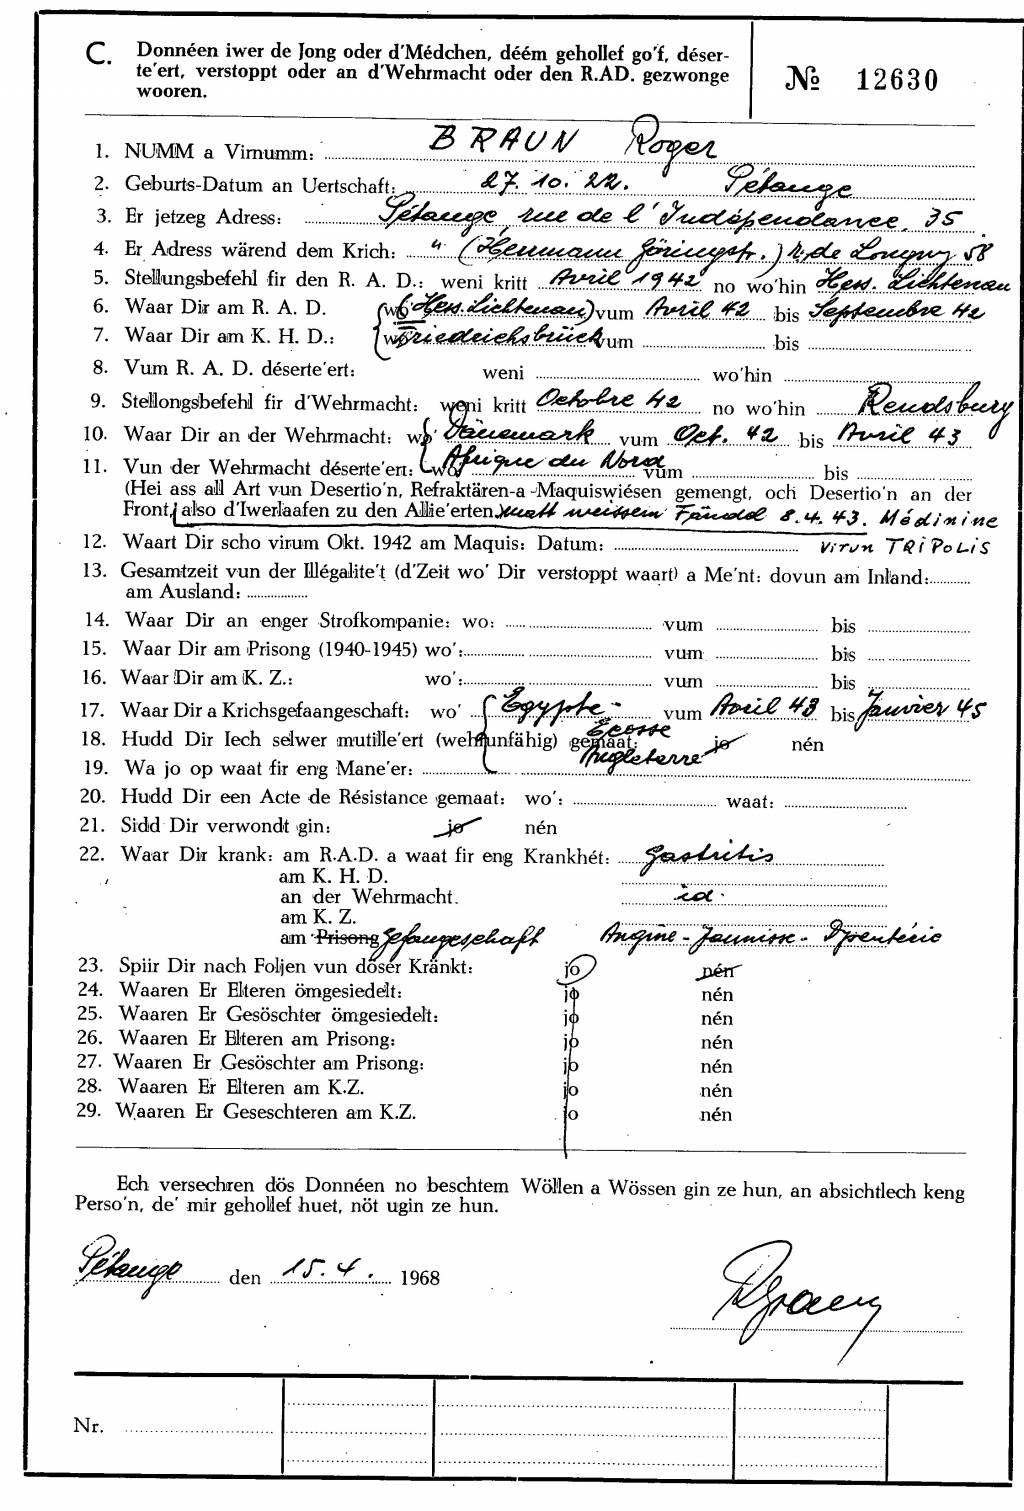 C. Donnéen iwer de Jong oder d'Médchen, déém gehollef go'f, déser-
te'ert, verstoppt oder an d'Wehrmacht oder den R.AD. gezwonge
wooren.
№ 12630
1. NUMM a Virnumm: BRAUN Roger
2. Geburts-Datum an Uertschaft: 27.10.22. Pétange
3. Er jetzeg Adress: Pétange, rue de l'Indépendance, 35
4. Er Adress wärend dem Krich: " (Hermann Göringstr.) R. de Longwy 58
5. Stellungsbefehl fir den R. A. D.: weni kritt Avril 1942 no wo'hin Hess. Lichtenau
6. Waar Dir am R. A. D. (wo Hess. Lichtenau) vum Avril 42 bis Septembre 42
7. Waar Dir am K. H. D.: (wo Friedrichsbrück vum bis
8. Vum R. A. D. déserte'ert: weni wo'hin
9. Stellongsbefehl fir d'Wehrmacht: weni kritt Octobre 42 no wo'hin Rendsburg
10. Waar Dir an der Wehrmacht: wo' Dänemark vum Oct. 42 bis Avril 43
11. Vun der Wehrmacht déserte'ert: wo Afrique du Nord vum bis
(Hei ass all Art vun Desertio'n, Refraktären-a -Maquiswiésen gemengt, och Desertio'n an der
Front, also d'Iwerlaafen zu den Allie'erten. matt weissem Fändel 8.4.43. Médinine
12. Waart Dir scho virum Okt. 1942 am Maquis: Datum: virun TRIPOLIS
13. Gesamtzeit vun der Illégalite't (d'Zeit wo' Dir verstoppt waart) a Me'nt: dovun am Inland:
am Ausland:
14. Waar Dir an enger Strofkompanie: wo: vum bis
15. Waar Dir am Prisong (1940-1945) wo': vum bis
16. Waar Dir am K. Z.: wo': vum bis
17. Waar Dir a Krichsgefaangeschaft: wo' Egypte - vum Avril 43 bis Janvier 45
Ecosse
18. Hudd Dir Iech selwer mutille'ert (wehrunfähig) gemaat: jo nén
Angleterre
19. Wa jo op waat fir eng Mane'er:
20. Hudd Dir een Acte de Résistance gemaat: wo': waat:
21. Sidd Dir verwondt gin: jo nén
22. Waar Dir krank: am R.A.D. a waat fir eng Krankhét: Gastritis
am K. H. D.
an der Wehrmacht. id.
am K. Z.
am Prisong Gefangeschaft Angine - Jaunisse - Dysentérie
23. Spiir Dir nach Foljen vun döser Kränkt: jo nén
24. Waaren Er Elteren ömgesiedelt: jo nén
25. Waaren Er Gesöschter ömgesiedelt: jo nén
26. Waaren Er Elteren am Prisong: jo nén
27. Waaren Er Gesöschter am Prisong: jo nén
28. Waaren Er Elteren am K.Z. jo nén
29. Waaren Er Geseschteren am K.Z. jo nén
Ech versechren dös Donnéen no beschtem Wöllen a Wössen gin ze hun, an absichtlech keng
Perso'n, de' mir gehollef huet, nöt ugin ze hun.
Pétange den 15.4. 1968
Nr.